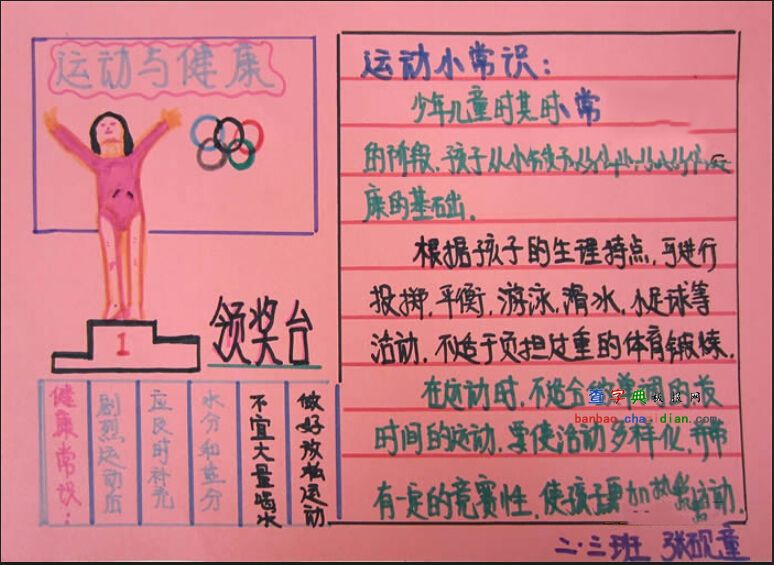 运动与健康
1
领奖台
健康常识：
剧烈运动后
应及时补充
水分和盐分
不宜大量喝水
做好放松运动
运动小常识：
少年儿童时其时 常
的阶段，孩子从小
康的基础。
根据孩子的生理特点，可进行
投掷，平衡，游泳，滑冰，小足球等
活动，不适于负担过重的体育锻炼。
在运动时，不适合 的
时间的运动，要使活动多样化，并带
有一定的竞赛性，使孩子更加热爱运动。
查字典 板报网
banbao.chazidian.com
二·三班 张砚童